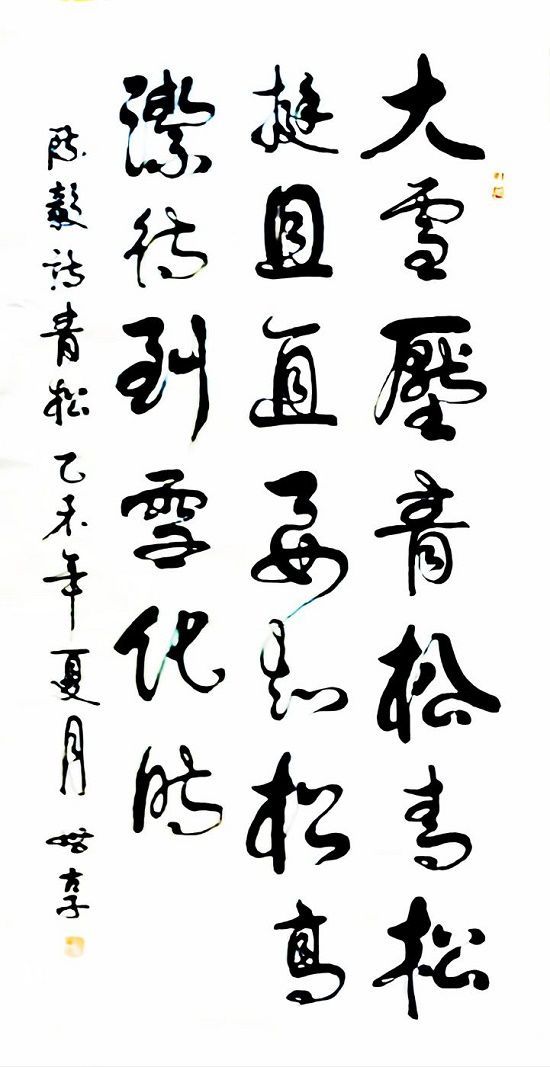 大雪壓青松青松
挺且直要知松高
潔待到雪化時
陈毅詩青松乙未年夏月